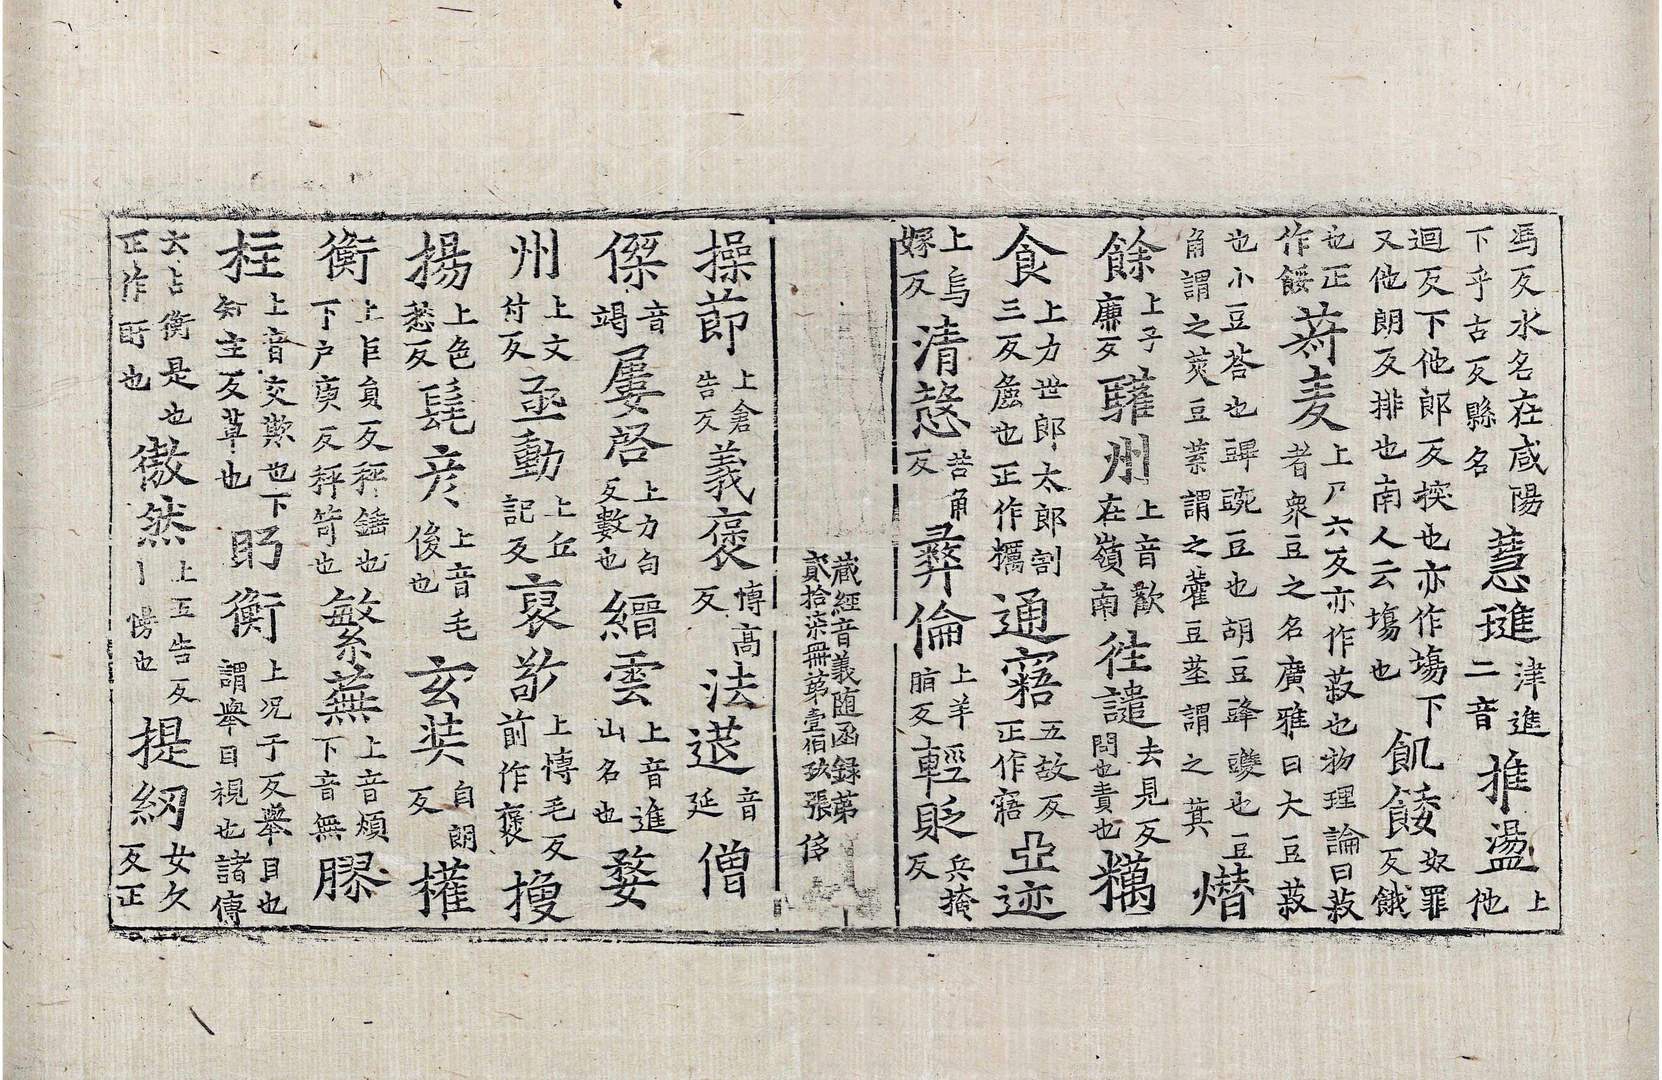 馮反水名在咸陽
下乎古反縣名
慧璡
津進
二音
推盪
上
他
迴反下他郎反挨也亦作塲下
又他朗反排也南人云塲也
飢餧
奴罪
反餓
也正
作餧
菽麦
上尸六反亦作菽也物理論曰菽
者衆豆之名廣雅曰大豆菽
也小豆荅也豍豌豆也胡豆䜶䝄也豆
角謂之莢豆葉謂之藿豆莖謂之萁
熸
餘
上子
廉反
雚州
上音歡
在嶺南
往譴
去見反
問也責也
糲
食
上力世郎太郎割
三反麁也正作糲
通寤
五故反
正作寤
亞迹
上烏
嫁反
清慤
苦角
反
彝倫
上羊
脂反
輕貶
兵掩
反
藏經音義随函録第
貳拾柒冊苐壹佰玖張 侈
操莭
上倉
告反
義褒
愽髙
反
法䢔
音
延
僧
傑
音
竭
屢啓
上力句
反數也
縉雲
上音進
山名也
婺
州
上文
付反
亟動
上丘
記反
裒㪣
上愽毛反
前作褒
搜
揚
上色
愁反
髦彦
上音毛
俊也
玄奘
自朗
反
權
衡
上巨負反秤錘也
下户庚反秤笴也
繁蕪
上音煩
下音無
膠
柱
上音交欺也下
知主反草也
盱衡
上况于反舉目也
謂舉目視也諸傳
云占衡是也
正作盱也
傲然
上五告反
丨愽也
提紉
女久
反正